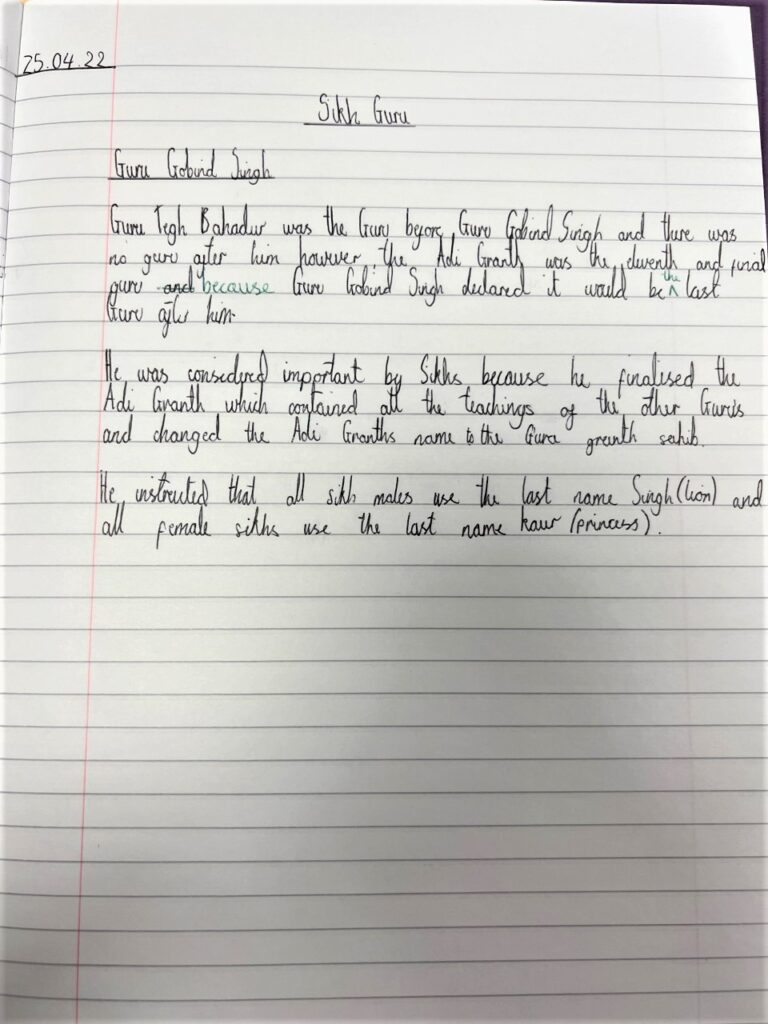 25.04.22
Sikh Guru
Guru Gobind Singh
Guru Tegh Bahadur was the Guru before Guru Gobind Singh and there was
no guru after him however the Adi Granth was the eleventh and final
guru and because Guru Gobind Singh declared it would be the last
Guru after him.
He was considered important by Sikhs because he finalised the
Adi Granth which contained all the teachings of the other Guru's
and changed the Adi Granths name to the Guru granth sahib.
He instructed that all sikh males use the last name Singh (lion) and
all female sikhs use the last name kaur (princess).